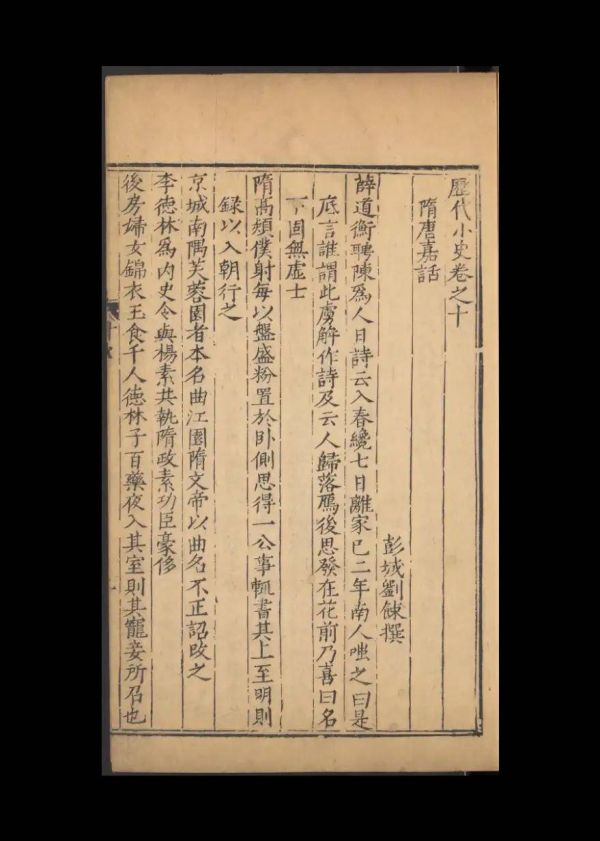 歷代小史卷之十
隋唐嘉話
彭城劉餗撰
薛道衡聘陳爲人日詩云入春纔七日離家已二年南人嗤之曰是
底言誰謂此虜解作詩及云人歸落鴈後思發在花前乃喜曰名
下固無虛士
隋高熲僕射每以盤盛粉置於卧側思得一公事輒書其上至明則
録以入朝行之
京城南隅芙蓉園者本名曲江園隋文帝以曲名不正詔改之
李德林爲内史令與楊素共執隋政素功臣豪侈
後房婦女錦衣玉食千人德林子百藥夜入其室則其寵妾所召也